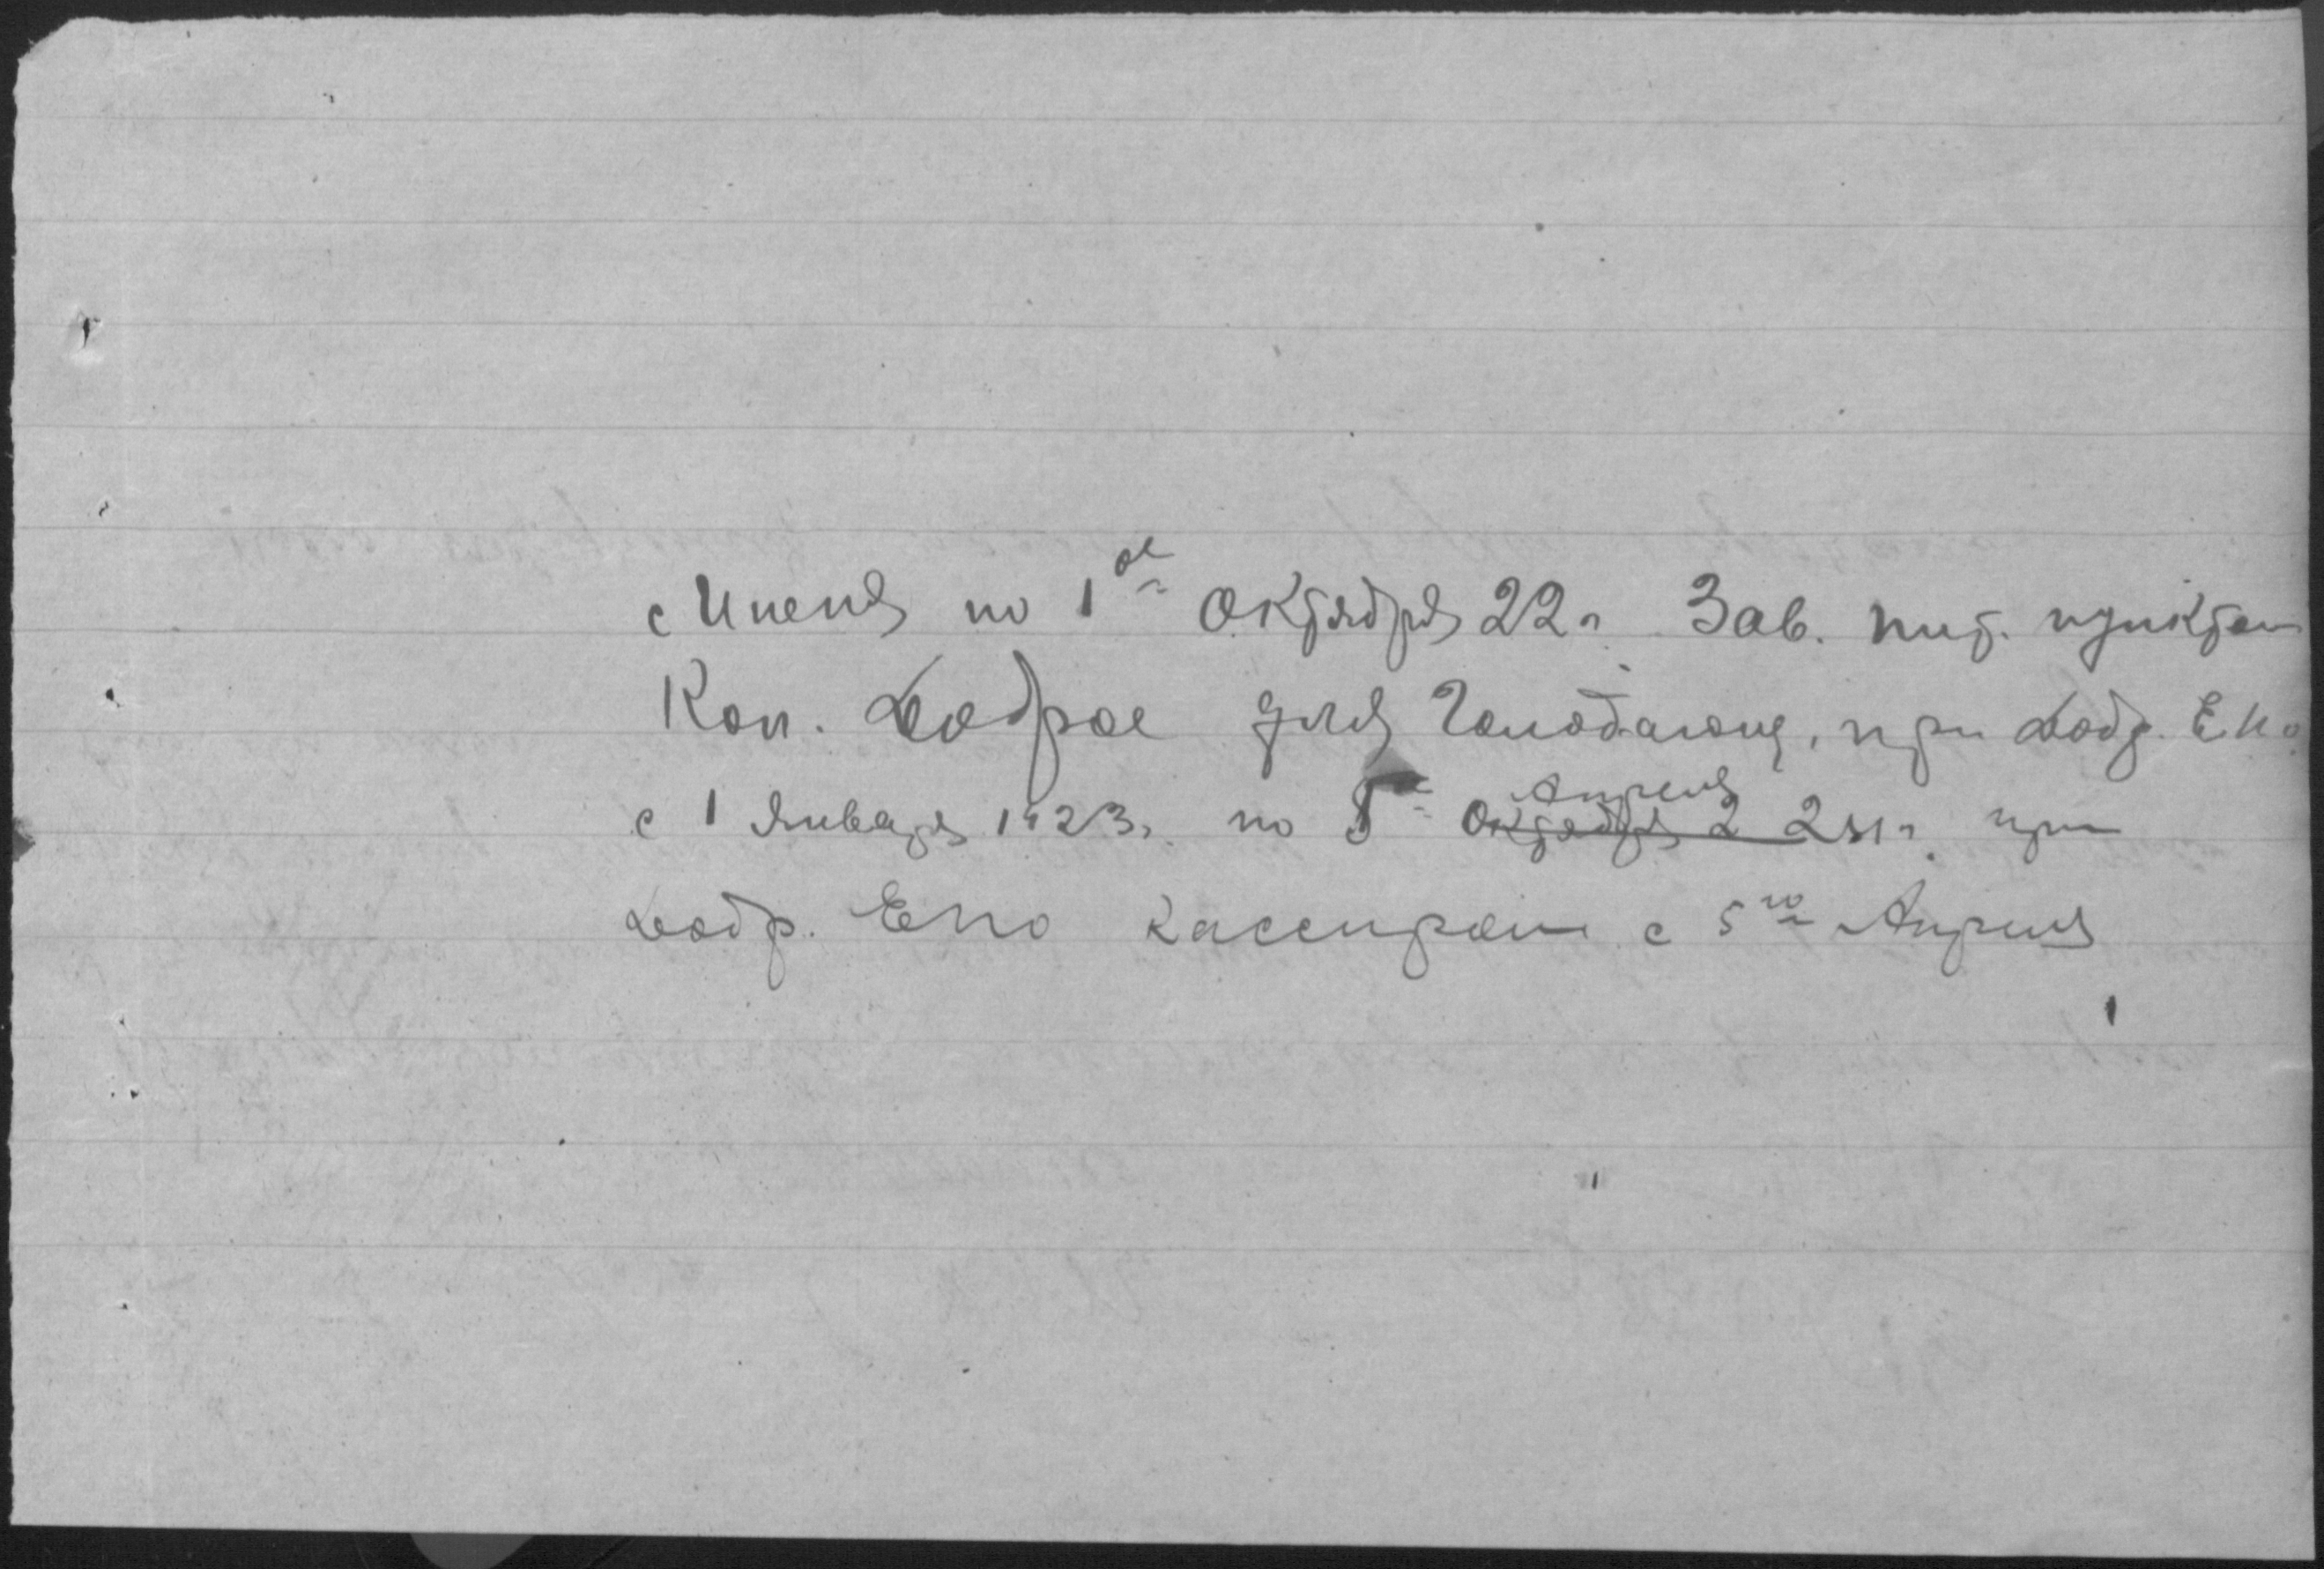 с Июня по 1ое Октября 22 г. Зав. пит. пунктом
Кол. Доброе для Голодающ. при Добр. ЕПО
с 1 Января 1923 г. по 5ое Октября 2 Апреля 24 г. при
Добр. ЕПО кассиром с 5го Апреля